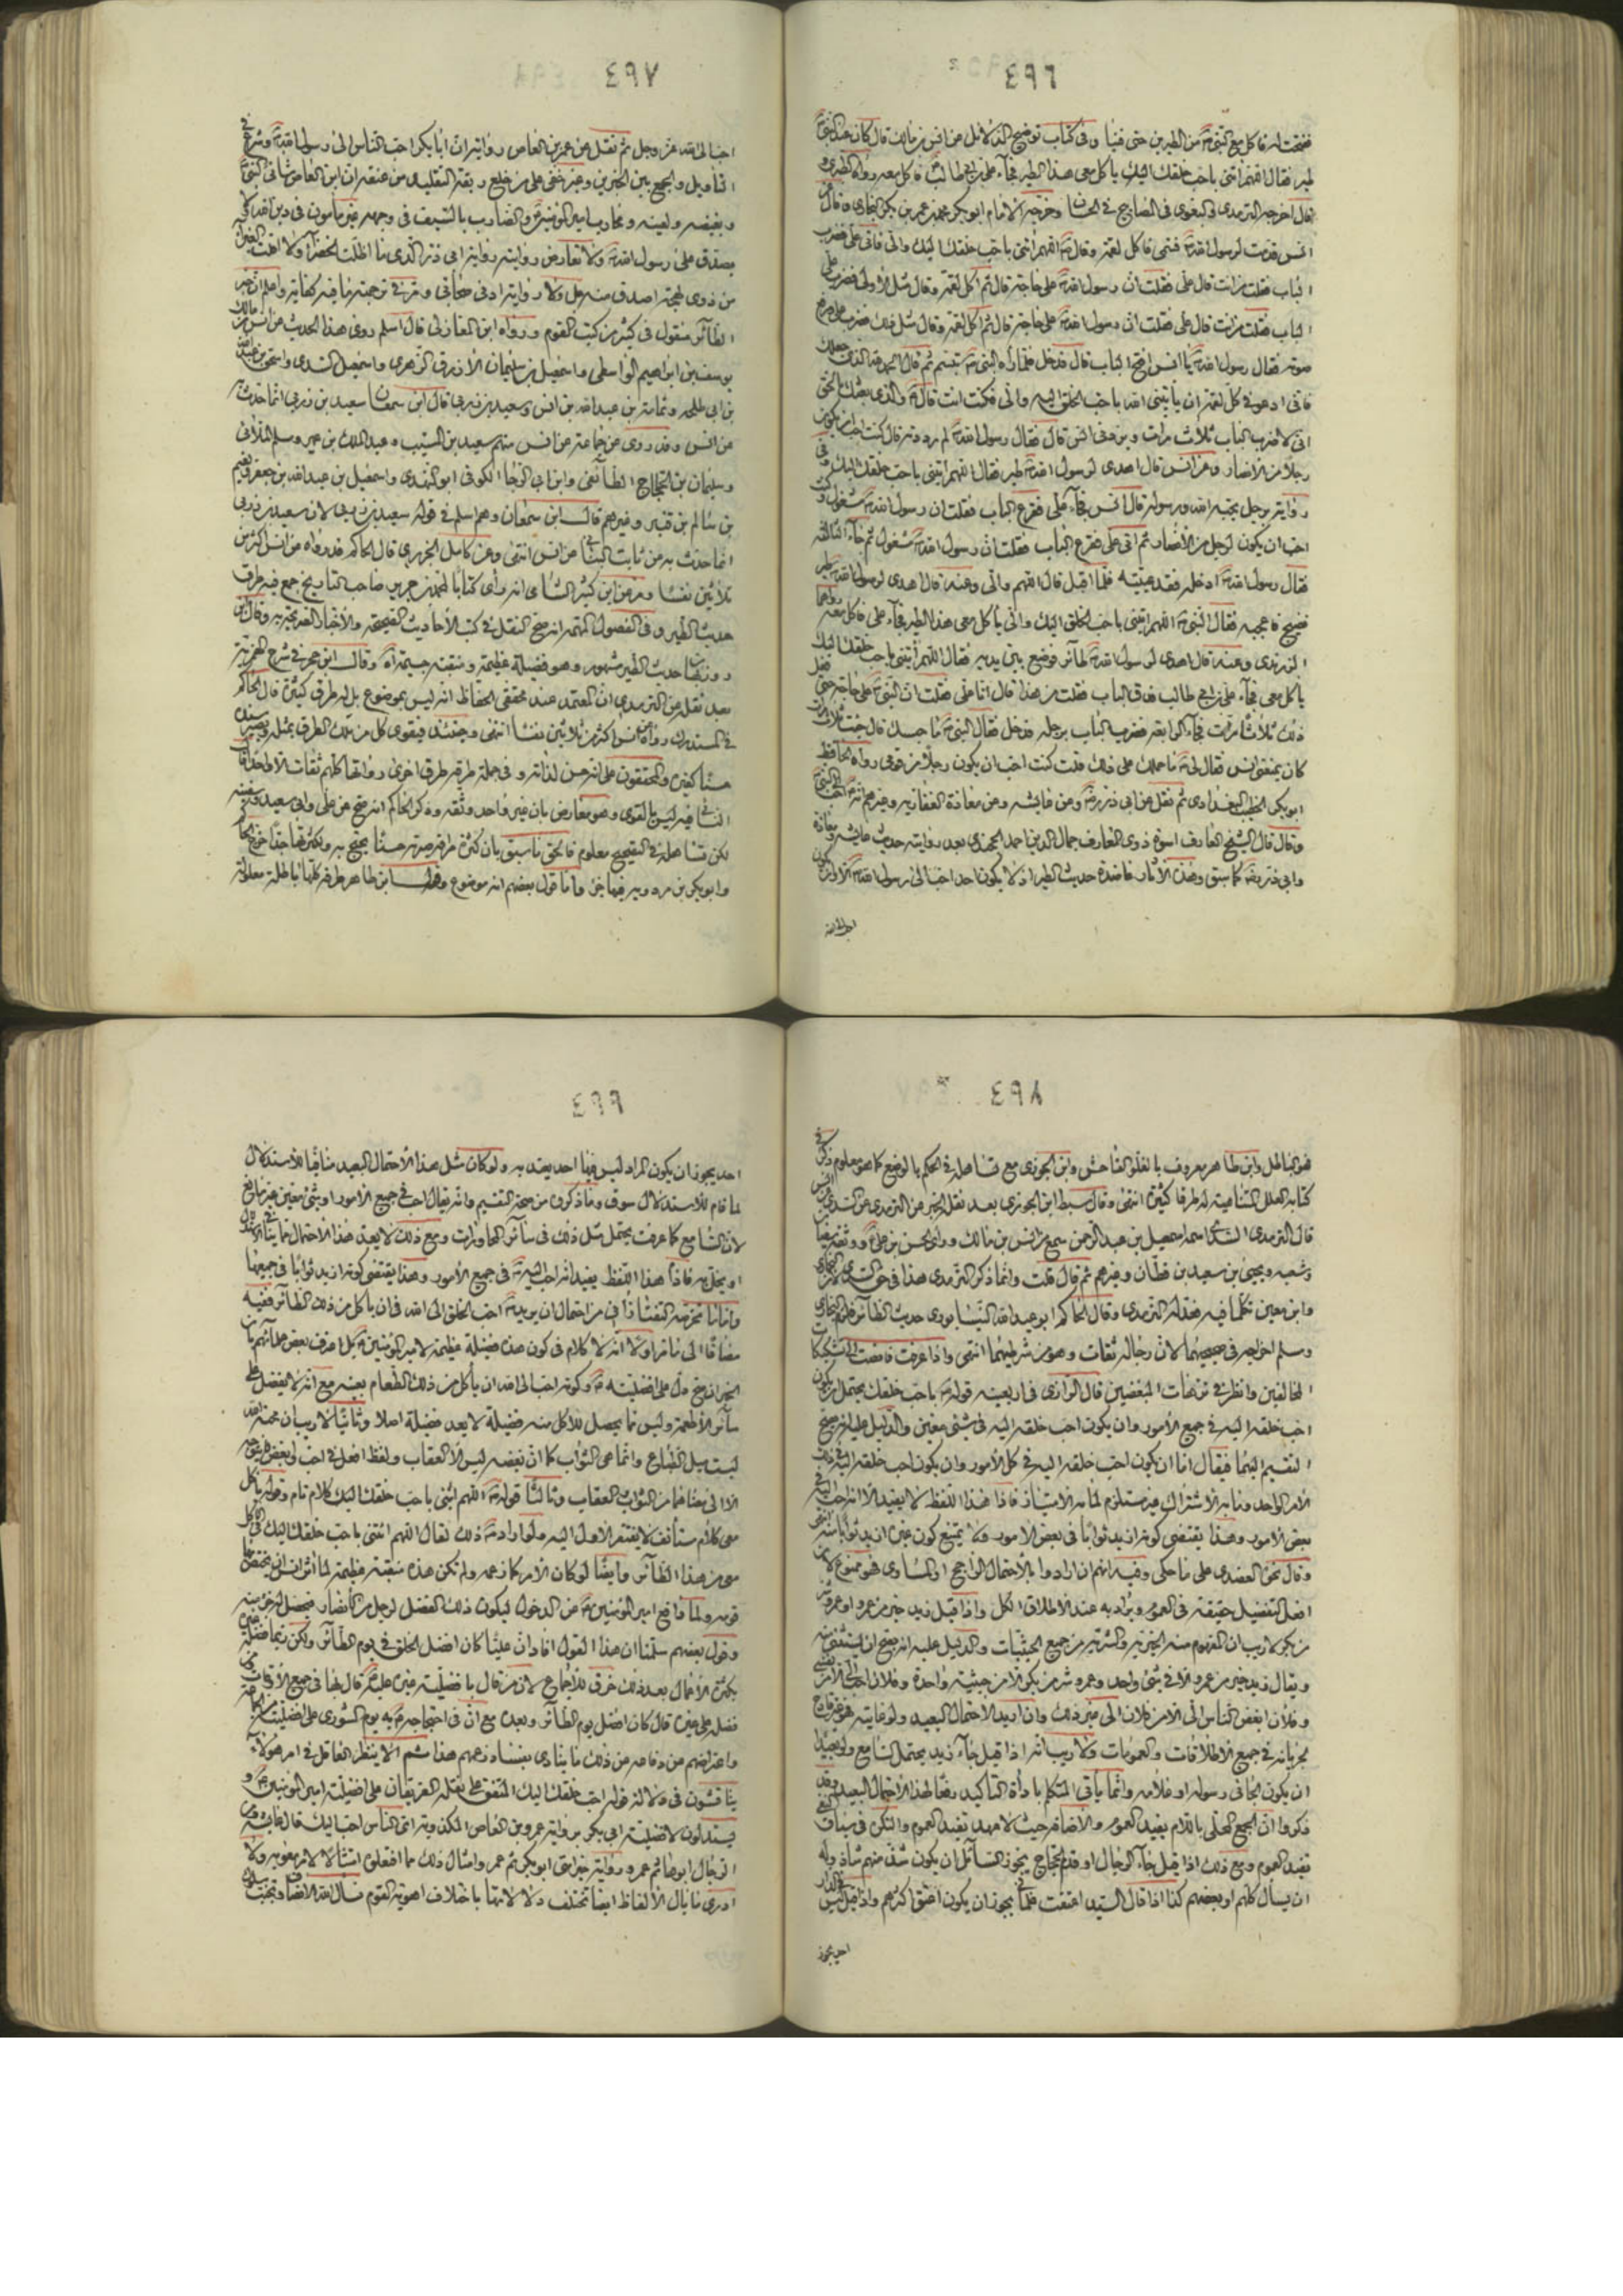 ٤٩٦
فاكل مع النبي من الطير حتى فنيا وفي كتاب توضيح الدلائل عن انس بن مالك قال كان عند النبي
طير فقال اللهم ائتني باحب خلقك اليك ياكل معي هذا الطير فجاء علي بن ابي طالب فاكل معه رواه الطبري و
قال اخرجه الترمذي والبغوي في المصابيح في الحسان وخرجه الامام ابو بكر محمد بن عمر بن بكر النجاري وقال
انس قدمت لرسول الله فسمى فاكل لقمة وقال اللهم ائتني باحب خلقك اليك والي فاتى علي فضرب
الباب فقلت من انت قال علي فقلت ان رسول الله على حاجة قال ثم اكل لقمة وقال مثل الاولى فضرب علي
الباب فقلت من انت قال علي فقلت ان رسول الله على حاجة قال ثم اكل لقمة وقال مثل ذلك فضرب علي ورفع
صوته فقال رسول الله يا انس افتح الباب قال فدخل فلما رآه النبي تبسم ثم قال الحمد لله الذي جعلك
فاني ادعو في كل لقمة ان ياتيني الله باحب الخلق اليه والي فكنت انت قال والذي بعثك بالحق
اني لاضرب الباب ثلاث مرات ويردني انس قال فقال رسول الله لم رددته قال كنت احب ان يكون
رجلا من الانصار وعن انس قال اهدى لرسول الله طير فقال اللهم ائتني باحب خلقك اليك وفي
رواية برجل يحبه الله ورسوله قال انس فجاء علي فقرع الباب فقلت ان رسول الله مشغول وكنت
احب ان يكون لرجل من الانصار ثم اتى علي فقرع الباب فقلت ان رسول الله مشغول ثم جاء الثالثة
فقال رسول الله ادخله فقد عنيته فلما اقبل قال اللهم والي وعنه قال اهدى لرسول الله طير
فقال النبي اللهم ائتني باحب الخلق اليك والي ياكل معي هذا الطير فجاء علي فاكل معه رواهما
الزرندي وعنه قال اهدى لرسول الله طائر فوضع بين يديه فقال اللهم ائتني باحب خلقك اليك
ياكل معي فجاء علي بن ابي طالب فدق الباب فقلت من هذا قال انا علي فقلت ان النبي على حاجة حتى فعل
ذلك ثلاثا فجاء الرابعة فضرب الباب برجله فدخل فقال النبي ما حبسك قال جئت ثلاث مرات
كان يمنعني انس فقال لي ما حملك على ذلك قلت كنت احب ان يكون رجلا من قومي رواه الحافظ
ابو بكر الخطيب البغدادي ثم نقل عن ابي ذر وعن عايشه وعن معاذة الغفارية وغيرهم انه احب الى النبي
وقال قال الشيخ العارف جمال الدين احمد الخجندي بعد رواية حديث عايشه ومعاذة
وابي ذر كما سبق وهذه الآثار عاضدة حديث الطير اذ لا يكون احد احب الى رسول الله الا
٤٩٧
احب الى الله عز وجل ثم نقل عن عمر بن العاص رواية ان ابا بكر احب الناس الى رسول الله وشرع في
التاويل والجمع بين الخبرين وغير خفي على من خلع ربقة التقليد من عنقه ان ابن العاص شانئ النبي
وبغيضه ولعينه ومحارب امير المؤمنين والضارب بالسيف في وجهه غير مأمون في دين الله
يصدق على رسول الله ولا تعارض روايته رواية ابي ذر الذي ما اظلت الخضراء ولا اقلت الغبراء
من ذوي لهجة اصدق منه بل ولا رواية ادنى صحابي ومر في ترجمته ما فيه كفاية واعلم ان خبر
الطائر منقول في كثير من كتب القوم ورواه ابن المغازلي قال اسلم روى هذا الحديث عن انس بن مالك
يوسف بن ابراهيم الواسطي واسمعيل بن سليمان الازرق والزهري واسمعيل السدي واسحق بن عبد الله
بن ابي طلحه وثمامة بن عبد الله بن انس وسعيد بن زربي قال ابن سمعان سعيد بن زربي انما حدث
عن انس وقد روى عن جماعة عن انس منهم سعيد بن المسيب وعبد الملك بن عمير ومسلم الملائي
وسليمان بن الحجاج الطائفي وابن ابي الرجا الكوفي ابو الهندي واسمعيل بن عبد الله بن جعفر ونعيم
بن سالم بن قنبر وغيرهم قال ابن سمعان وهم اسلم في قوله سعيد بن زربي لان سعيد بن زربي
انما حدث به عن ثابت البناني عن انس انتهى وعن كامل الجزري قال الحاكم قد رواه عن انس اكثر من
ثلاثين نفسا وعن ابن كثير الشامي انه رأى كتابا لمحمد بن جرير صاحب التاريخ جمع فيه طرق
حديث الطير وفي الفصول المهمة انه صح النقل في كتب الاحاديث الصحيحة والاخبار الصريحة
حديث الطير مشهور وهو فضيلة عظيمة ومنقبة جسيمة وقال ابن حجر في شرح الهمزية
بعد نقله عن الترمذي ان المعتمد عند محققي الحفاظ انه ليس بموضوع بل له طرق كثيرة قال الحاكم
في المستدرك رواه عن انس اكثر من ثلاثين نفسا انتهى وحينئذ فيقوى كل من تلك الطرق بمثله ويصير سنده
حسنا لغيره والمحققون على انه حسن لذاته وفي جملة طرقه طريق اخرى رواتها كلهم ثقات الا واحدا قال
النسائي فيه ليس بالقوي وهو معارض بان غير واحد وثقه وذكر الحاكم انه صح عن علي وابي سعيد وسفينه
لكن تساهله في التصحيح معلوم فالحق ما سبق بان كثرة طرقه صيرته حسنا يحتج به
وابو بكر بن مردويه فيهما جزء واما قول بعضهم انه موضوع وقول ابن طاهر طرقه كلها باطلة معلولة
٤٩٨
فهو الباطل وابن طاهر معروف بالغلو الفاحش وابن الجوزي مع تساهله في الحكم بالوضع كما هو معلوم ذكر في
كتابه العلل المتناهية له طرقا كثيرة انتهى وقال سبط ابن الجوزي بعد نقل الخبر عن الترمذي عن السدي عن انس
قال الترمذي السدي اسمه اسمعيل بن عبد الرحمن سمع من انس بن مالك وراى الحسين بن علي ووثقه سفيان
وشعبه ويحيى بن سعيد بن قطان وغيرهم ثم قال قلت وانما ذكر الترمذي هذا في حق السدي
وابن معين تكلما فيه فعدله الترمذي وقال الحاكم ابو عبد الله النيسابوري حديث الطائر يلزم البخاري
ومسلم اخراجه في صحيحيهما لان رجاله ثقات وهو من شرطهما انتهى واذا عرفت تشكيكات
المخالفين وانظر في ترهات المبغضين قال الرازي في اربعينه قوله باحب خلقك يحتمل ان يكون
احب خلقه اليه في جميع الامور وان يكون احب خلقه اليه في شيء معين والدليل عليه انه صح
التقسيم اليهما فيقال اما ان يكون احب خلقه اليه في كل الامور وان يكون احب خلقه اليه في ذلك
الامر الواحد وما به الاشتراك غير مستلزم لما به الامتياز فاذا هذا اللفظ لا يفيد الا انه احب اليه في
بعض الامور وهذا يقتضي كونه ازيد ثوابا في بعض الامور ولا يمتنع كون غيره ازيد ثوابا
وقال نحوه العضدي على ما حكى وفيه انهم ان ارادوا بالاحتمال الراجح او المساوي فهو ممنوع لان
افعل التفضيل حقيقة في العموم ويراد به عند الاطلاق الكل واذا قيل زيد خير من عمرو او عمرو شر
من بكر لا ريب ان المفهوم منه الخيرية والشرية من جميع الحيثيات والدليل عليه انه يصح ان يستثنى منه
ويقال زيد خير من عمرو الا في شيء واحد وعمرو شر من بكر الا من حيثية واحدة وفلان احب الي
وفلان ابغض الناس الي الا من فلان الى غير ذلك وان اريد الاحتمال البعيد ولو غايته فهو غير قادح
لجريانه في جميع الاطلاقات والعمومات ولا ريب انه اذا قيل جاء زيد يحتمل السامع ولو بعيدا
ان يكون الجائي رسوله او غلامه وانما يأتي المتكلم باداة التاكيد رفعا لهذا الاحتمال البعيد وقد
ذكروا ان الجمع المحلى باللام يفيد العموم والاضافة حيث لا عهد يفيد العموم والنكرة في سياق النفي
تفيد العموم ومع ذلك اذا قيل جاء الرجال او قدم الحجاج يجوز السائل ان يكون شذ منهم شاذ وله
ان يسأل كلهم او بعضهم كذا اذا قال السيد اعتقت غلماني يجوز ان يكون اعتق اكثرهم واذا قيل ليس في الدار
احد يجوز
٤٩٩
احد يجوز ان يكون المراد ليس فيها احد يعتد به ولو كان مثل هذا الاحتمال البعيد منافيا للاستدلال
لما قام للاستدلال سوق وما ذكروه من صحة التقسيم وانه يقال احب في جميع الامور او شيء معين غير نافع
لان السامع كما عرفت يحتمل مثل ذلك في سائر المحاورات ومع ذلك لا يعد هذا الاحتمال مما ينافي الاستدلال
او يخل به فاذا هذا اللفظ يفيد انه احب اليه في جميع الامور وهذا يقتضي كونه ازيد ثوابا في جميعها
واما ما تخرصه التفتازاني من احتمال ان يريد احب الخلق الى الله في ان ياكل من ذلك الطائر ففيه
مضافا الى ما مر اولا انه لا كلام في كون هذه فضيلة عظيمة لامير المؤمنين بل اعترف بعض علمائهم بان
الخبر ان صح دل على افضليته وكونه احب الى الله ان ياكل من ذلك الطعام بعينه مع انه لا يفضل على
سائر الاطعمة وليس مما يحصل للآكل منه فضيلة لا يعد فضيلة اصلا وثانيا لا ريب ان محبة الله
ليست ميل الطباع وانما هي الثواب كما ان بغضه ليس الا العقاب ولفظ افعل في احب وابغض
الا الى معناهما من الثواب العقاب وثالثا قوله اللهم ائتني باحب خلقك اليك كلام تام وقوله ياكل
معي كلام مستأنف لا يفتقر الاول اليه فلو اراد ذلك لقال اللهم ائتني باحب خلقك اليك في الاكل
معي من هذا الطائر وايضا لو كان الامر كما زعمه ولم تكن هذه منقبة عظيمة لما اثر انس ان يختص بها
قومه ولما دافع امير المؤمنين عن الدخول ليكون ذلك الفضل لرجل من الانصار
وقول بعضهم سلمنا ان هذا القول افاد ان عليا كان افضل الخلق في يوم الطائر ولكن
بكثرة الاعمال بعد ذلك خرق للاجماع لان من قال بافضلية غيره عليه قال بها في جميع الاوقات ومن
فضله على غيره قال كان افضل يوم الطائر وبعده مع ان في احتجاجه به يوم الشورى على افضليته
واعترافهم من دفاعه من ذلك ما ينادي بفساد زعمهم هذا ثم الا ينظر العاقل في امر هؤلاء
يناقشون في دلالة قوله احب خلقك اليك المتفق على نقله الفريقان على افضلية امير المؤمنين و
يستدلون لافضلية ابي بكر برواية عمرو بن العاص المكذوبة اي الناس احب اليك قال عايشه ومن
الرجال ابوها ثم عمر وامثال ذلك مما افتعلوه ولا
ادري ما بال الالفاظ ايضا تختلف دلالاتها باختلاف اهوية القوم نسأل الله الانصاف